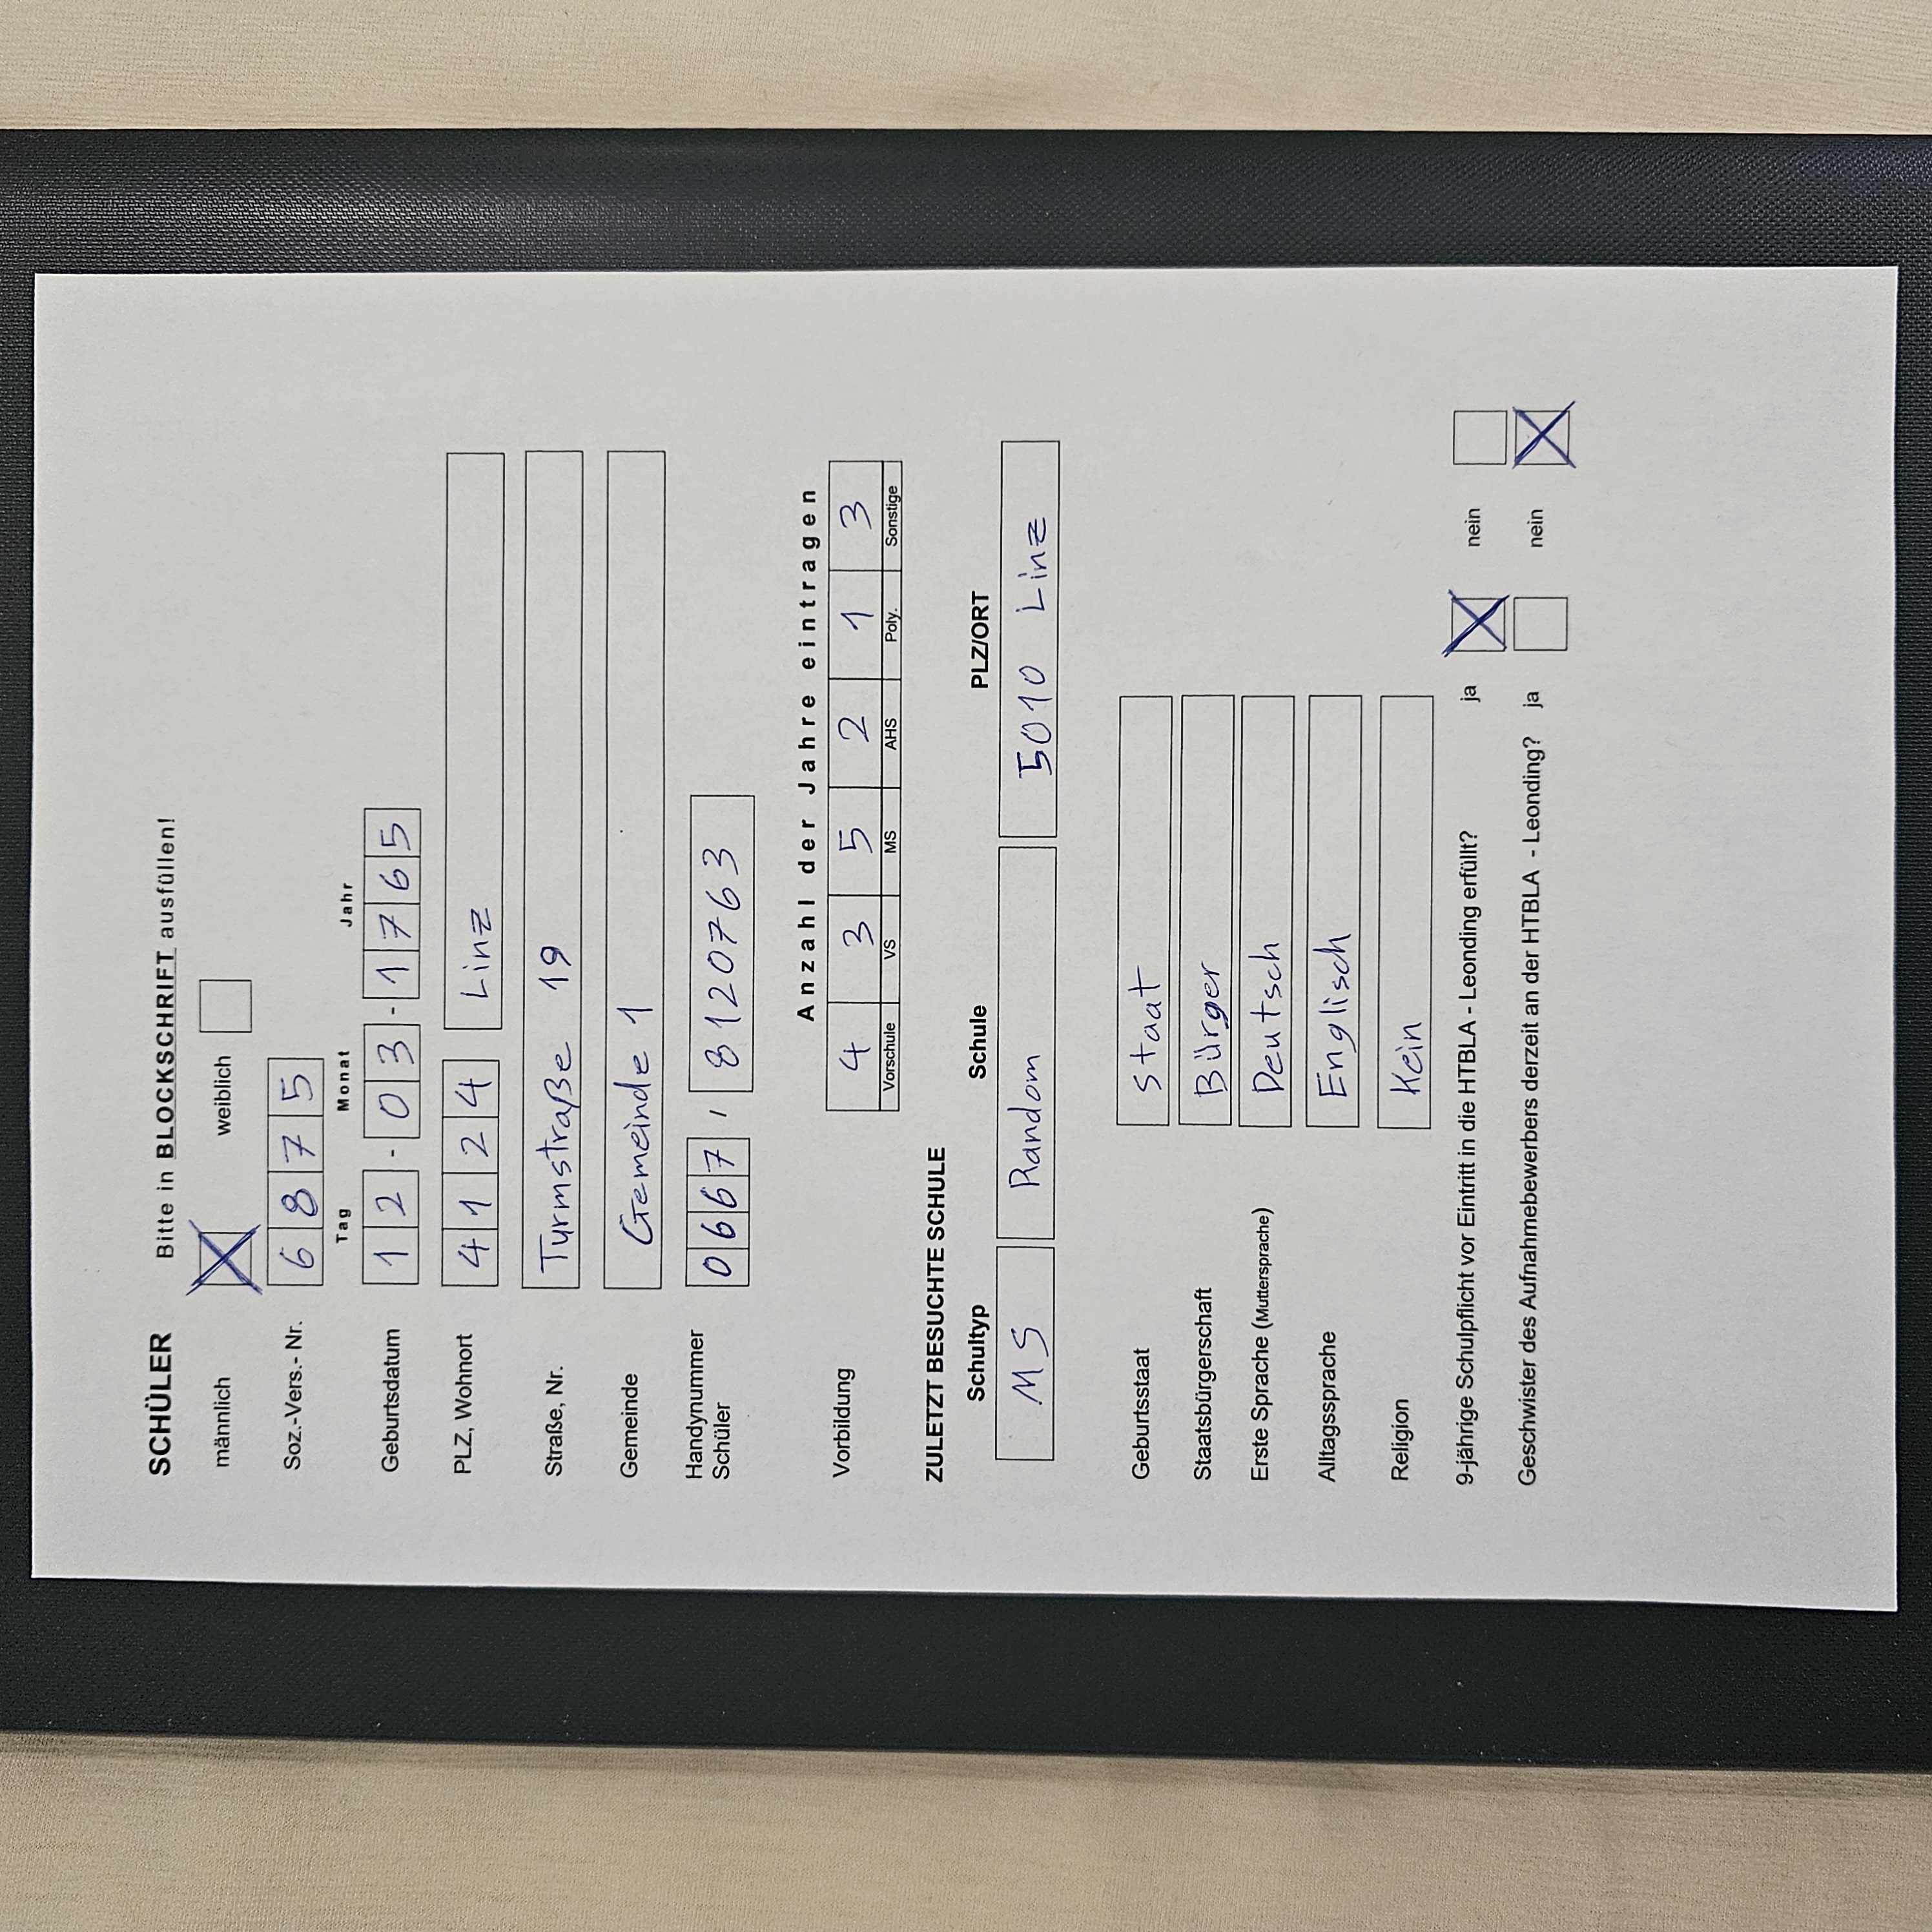 SCHÜLER Bitte in BLOCKSCHRIFT ausfüllen!
männlich X weiblich
Soz.-Vers.- Nr. 6 8 7 5
Tag Monat Jahr
Geburtsdatum 1 2 - 0 3 - 1 7 6 5
PLZ, Wohnort 4 1 2 4 Linz
Straße, Nr. Turmstraße 19
Gemeinde Gemeinde 1
Handynummer
Schüler 0 6 6 7 / 8120763
Anzahl der Jahre eintragen
Vorbildung 4 3 5 2 1 3
Vorschule VS MS AHS Poly. Sonstige
ZULETZT BESUCHTE SCHULE
Schultyp Schule PLZ/ORT
MS Random 5010 Linz
Geburtsstaat Staat
Staatsbürgerschaft Bürger
Erste Sprache (Muttersprache) Deutsch
Alltagssprache Englisch
Religion Kein
9-jährige Schulpflicht vor Eintritt in die HTBLA - Leonding erfüllt? ja X nein
Geschwister des Aufnahmebewerbers derzeit an der HTBLA - Leonding? ja nein X